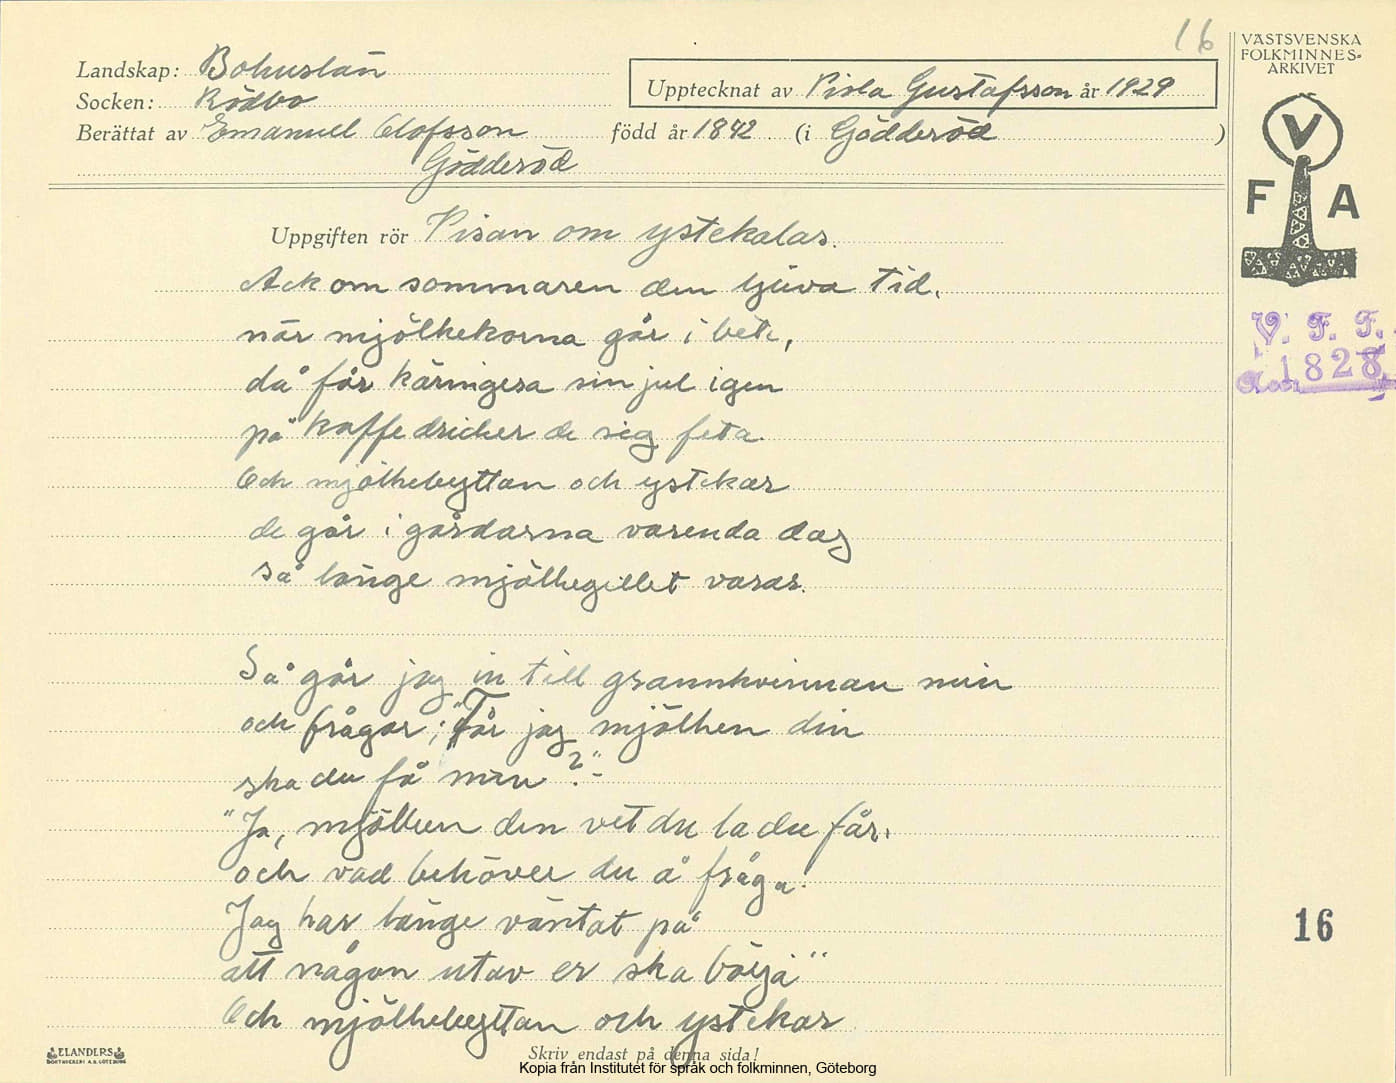 16
VÄSTSVENSKA
FOLKMINNES-
ARKIVET
Landskap: Bohuslän
Upptecknat av Viola Gustafsson år 1929
Socken: Rödbo
Berättat av Emanuel Olofsson född år 1842 (i Gödderöd )
Gödderöd
V
F A
Uppgiften rör Visan om ystekalas.
Ack om sommaren den ljuva tid,
när mjölkekorna går i bete,
V. F. F.
Acc. 1828
då får käringera sin jul igen
på kaffe dricker de sig feta.
Och mjölkebyttan och ystekar
de går i gårdarna varenda dag
så länge mjölkegillet varar.
Så går jag in till grannkvinnan min
och frågar; "Får jag mjölken din
ska du få min?"-
"Ja, mjölken den vet du la du får,
och vad behöver du å fråga.
Jag har länge väntat på
16
att någon utav er ska börja"
Och mjölkebyttan och ystekar
ELANDERS
BOKTRYCKERI A.B. GÖTEBORG
Skriv endast på denna sida!
Kopia från Institutet för språk och folkminnen, Göteborg